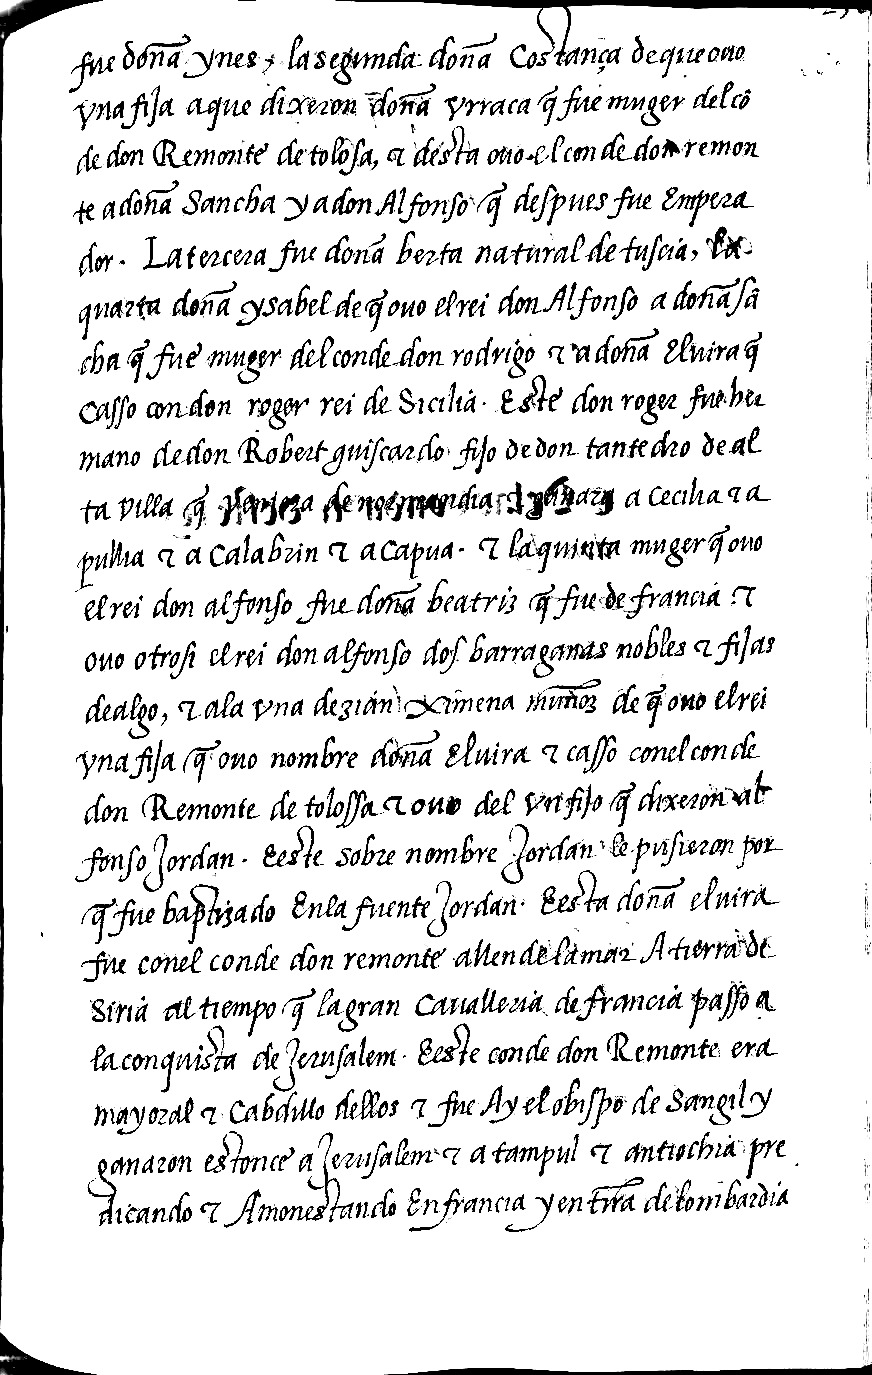 fue doña ynes, la segunda doña Costança de que ouo
vna fija a que dixeron doña vrraca q̃ fue muger del cõ
de don Remonte de tolosa, & desta ouo el conde don remon
te a doña Sancha y a don Alfonso q̃ despues fue Empera
dor. La tercera fue doña berta natural de tuscia, la
quarta doña ysabel de q̃ ouo el rei don Alfonso a doña sã
cha q̃ fue muger del conde don rodrigo & a doña Eluira q̃
Casso con don roger rei de Sicilia. Este don roger fue her
mano de don Robert guiscardo fijo de don tantedro de al
ta villa q̃ de normandia & a Cecilia & a
pullia & a Calabrin & a Capua. & la quinta muger q̃ ouo
el rei don alfonso fue doña beatriz q̃ fue de francia &
ouo otrosi el rei don alfonso dos barraganas nobles & fijas
dealgo, & ala vna dezian Ximena muñoz de q̃ ouo el rei
vna fija q̃ ouo nombre doña Eluira & casso conel conde
don Remonte de tolossa & ouo del vn fijo q̃ dixeron al
fonso Jordan. Eeste sobre nombre Jordan le pusieron por
q̃ fue baptizado Enla fuente Jordan. Eesta doña eluira
fue conel conde don remonte allende la mar A tierra de
Siria al tiempo q̃ la gran Caualleria de francia passo a
la conquista de Jerusalem. Eeste conde don Remonte era
mayoral & Cabdillo dellos & fue Ay el obispo de Sangil y
ganaron estonce a Jerusalem & a tampul & antiochia pre
dicando & Amonestando En francia y en trr̃a de lombardia